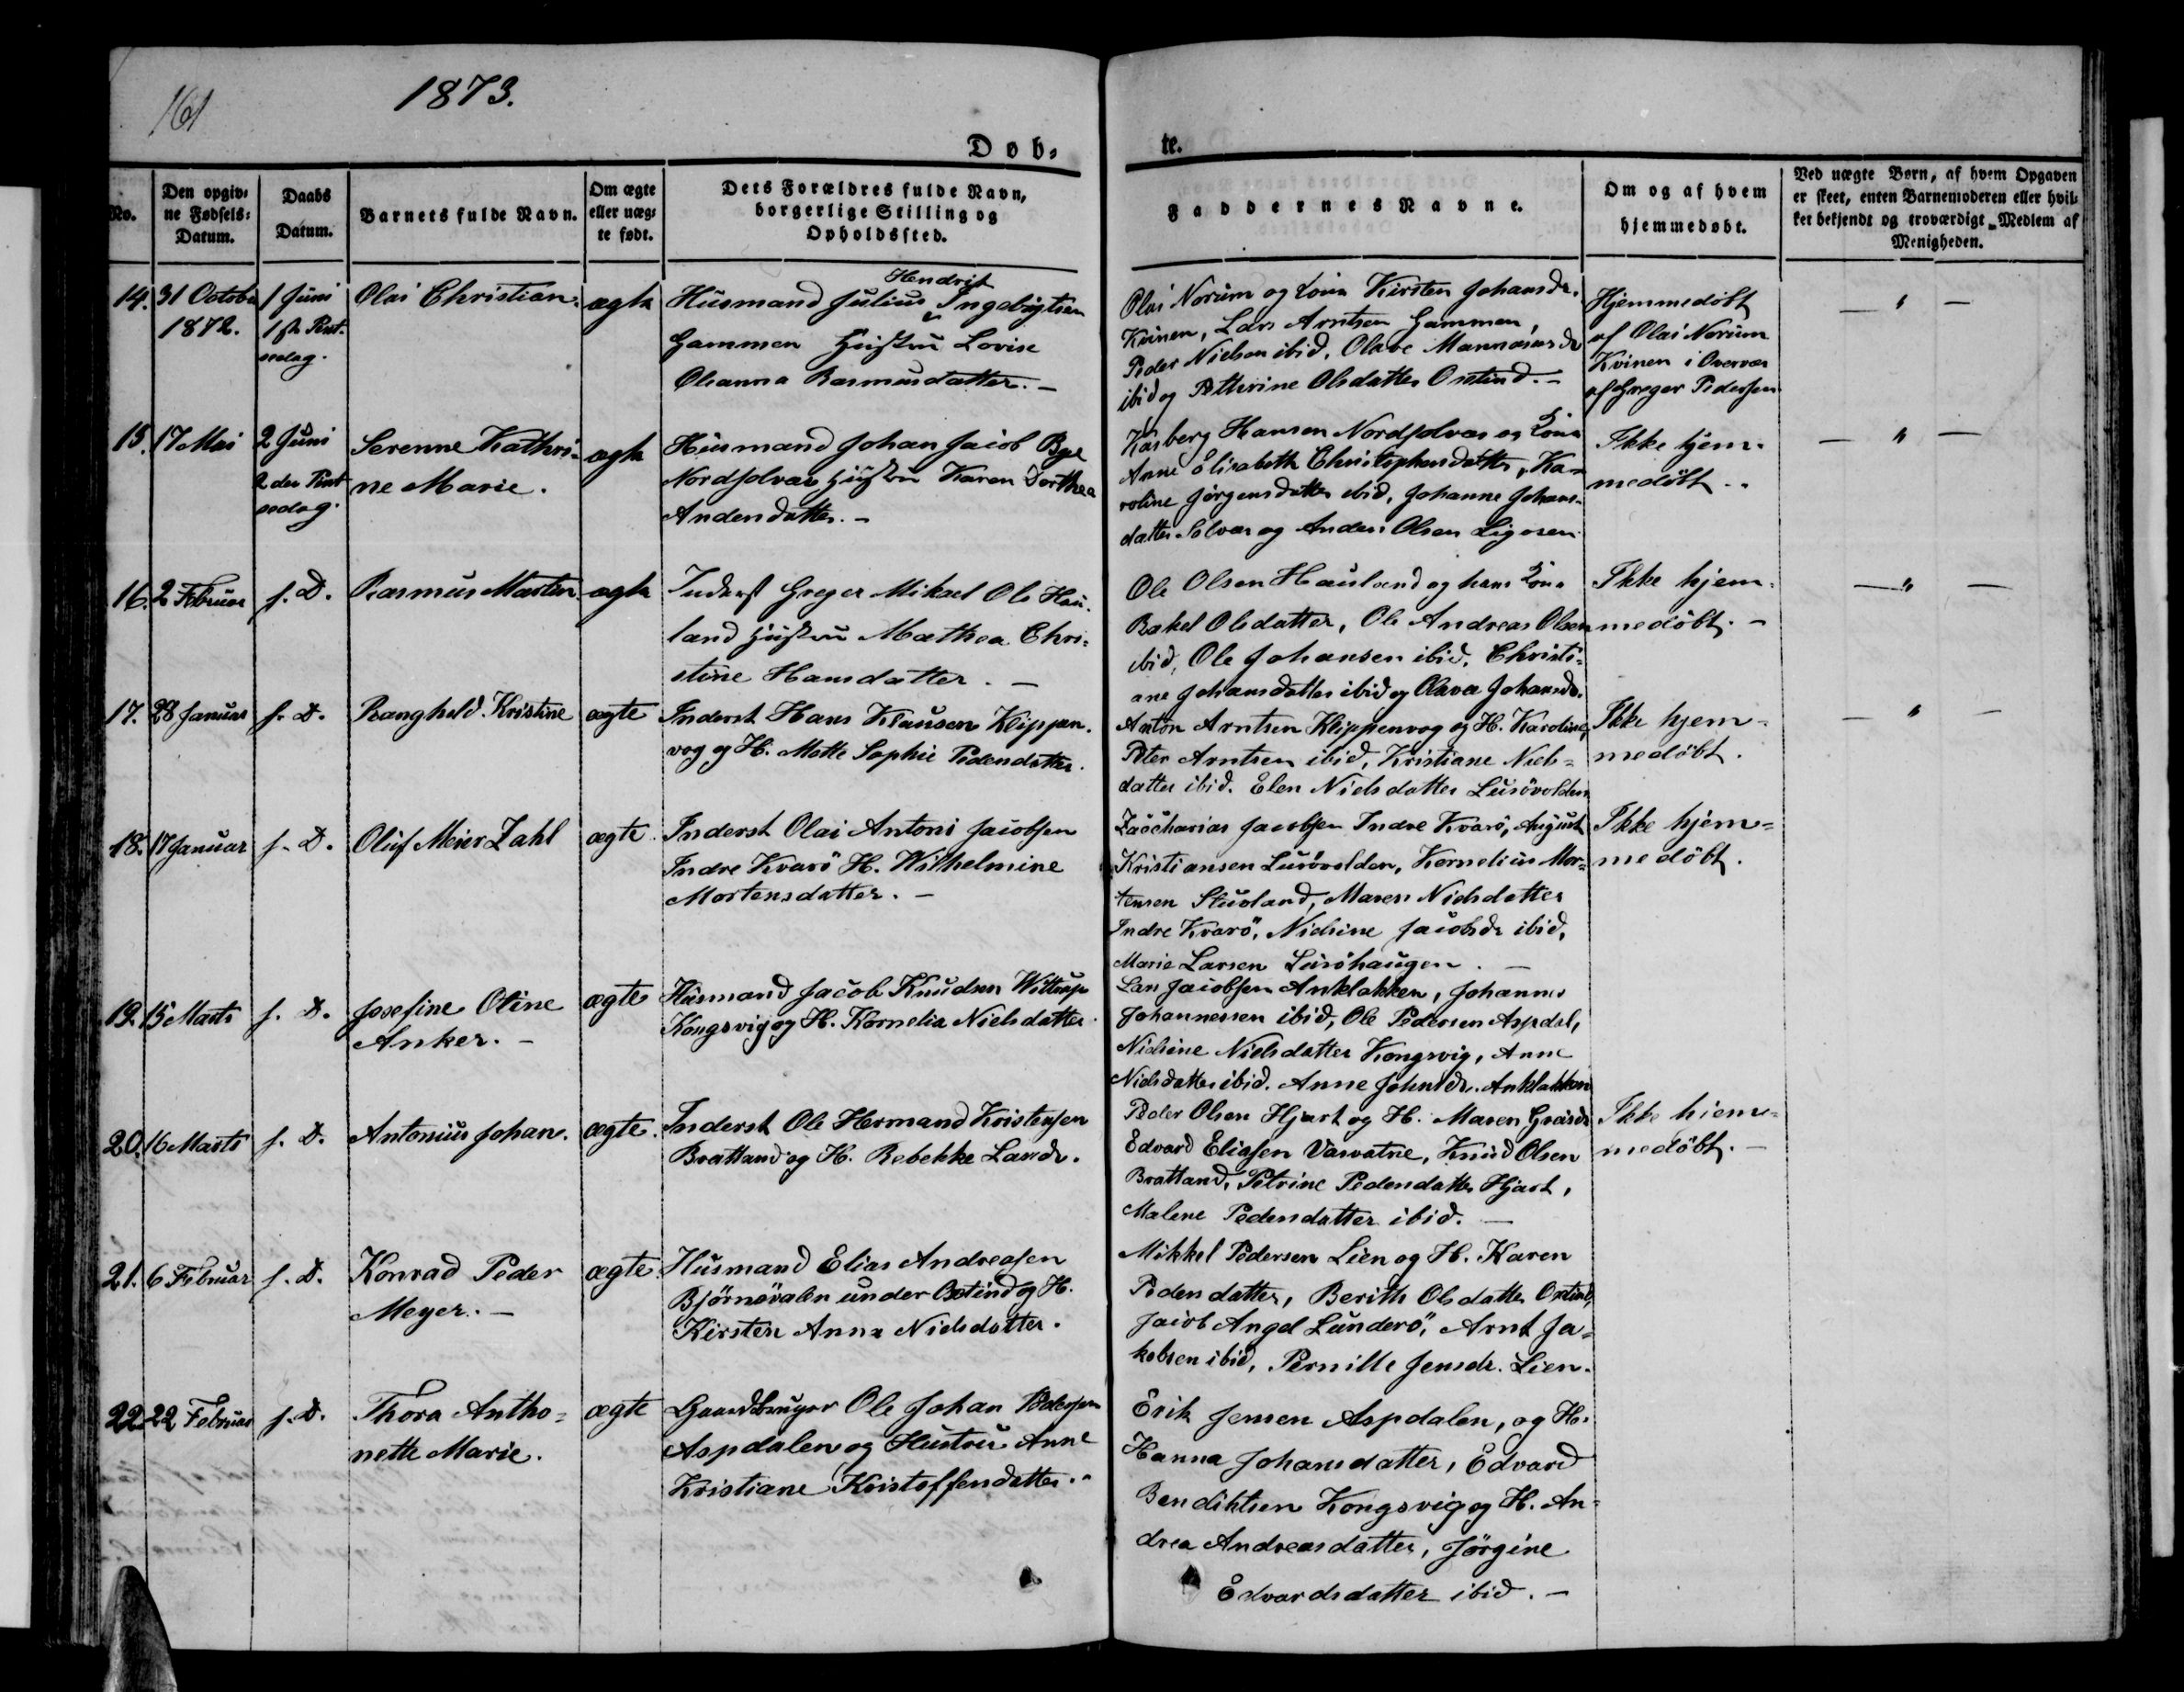 161
1873.
Døb-
te.
No.
Den opgiv-
ne Fødsels-
Datum.
Daabs
Datum.
Barnets fulde Navn.
Om ægte
eller uæg-
te født.
Dets Forældres fulde Navn,
borgerlige Stilling og
Opholdssted.
Faddernes Navne.
Om og af hvem
hjemmedøbt.
Ved uægte Børn, af hvem Opgaven
er skeet, enten Barnemoderen eller hvil-
ket bekjendt og troværdigt Medlem af
Menigheden.
14.
31 Octobr
1872.
1 Juni
1ste Pint-
sedag.
Olai Christian.
ægte
Hendrik
Husmand Julius Ingebrigtsen
Gammen Hustru Lovise
Oleanna Rasmusdatter. —
Olai Norum og Kona Kirsten Johansdr.
Kvinen, Lars Arntsen Gammen,
Peder Nielsen ibid, Olave Mannasesdr
ibid og Pethrine Olsdatter Oxtind. —
Hjemmedöbt
af Olai Norum
Kvinen i Overvær
af Greger Pedersen
— " —
15.
17 Mai
2 Juni
2den Pint-
sedag.
Serenne Kathri-
ne Marie.
ægte
Husmand Johan Jacob Bye
Nordsolvær Hustru Karen Dorthea
Andersdatter. —
Kasberg Hansen Nordsolvær og Kona
Anne Elisabeth Christophersdatter, Ka-
roline Jörgensdatter ibid, Johanne Johans-
datter Solvær og Anders Olsen Ligosen
Ikke hjem-
medöbt. -
— " —
16.
2 Februar
s. D.
Rasmus Morten
ægte
Inderst Greger Mikael Ols Hau-
land Hustru Mathea Chri-
stine Hansdatter. —
Ole Olsen Hauland og hans Kona
Rakel Olsdatter, Ole Andreas Olsen
ibid, Ole Johansen ibid, Christi-
ane Johansdatter ibid og Olava Johansdr.
Ikke hjem-
medöbt. —
— " —
17.
28 Januar
s. D.
Rangheld Kristine
ægte
Inderst Hans Klausen Klippen-
vog og H. Mette Sophie Pedersdatter.
Anton Arntsen Klippenvog og H. Karoline,
Peter Arntsen ibid, Kristiane Niels-
datter ibid. Elen Nielsdatter Lurövolden
Ikke hjem-
medöbt.
— " —
18.
17 Januar
s. D.
Oluf Meier Zahl
ægte
Inderst Olai Antoni Jacobsen
Indre Kvarö H. Wilhelmine
Mortensdatter. —
Zaccharias Jacobsen Indre Kvarö, August
Kristiansen Lurövolden, Kornelius Mor-
tensen Stuvland, Maren Nielsdatter
Indre Kvarö, Nielsine Jacobsdr ibid,
Marie Larsen Luröhaugen. —
Ikke hjem-
medöbt.
19.
15 Marts
s. D.
Josefine Oline
Anker. —
ægte
Husmand Jacob Knudsen Wittrup
Kongsvig og H. Kornelia Nielsdatter.
Lars Jacobsen Anklakken, Johannes
Johannessen ibid, Ole Pedersen Aspdal,
Nielsine Nielsdatter Kongsvig, Anne
Nielsdatter ibid. Anne Johnsdr. Anklakken
20.
16 Marts
s. D.
Antonius Johan.
ægte.
Inderst Ole Hermand Kristensen
Bratland og H. Rebekke Larsdr.
Peder Olsen Hjart og H. Maren
Edvard Eliasen Varvatne, Knud Olsen
Bratland, Petrine Pedersdatter Hjart,
Malene Pedersdatter ibid. —
Ikke hjem-
medöbt. —
21.
6 Februar
s. D.
Konrad Peder
Meyer. —
ægte
Husmand Elias Andreasen
Björnövalen under Oxtind og H.
Kirsten Anna Nielsdatter.
Mikkel Pedersen Lien og H. Karen
Pedersdatter, Berith Olsdatter Oxtind,
Jacob Angel Lunderö, Arnt Ja-
kobsen ibid, Pernille Jensdr. Lien.
22.
22 Februar
s. D.
Thora Antho-
nette Marie.
ægte
Gaardbruger Ole Johan Pedersen
Aspdalen og Hustru Anne
Kristiane Kristoffersdatter. -
Erik Jensen Aspdalen, og H.
Hanna Johansdatter, Edvard
Bendiktsen Kongsvig og H. An-
drea Andreasdatter, Jörgine
Edvardsdatter ibid. —